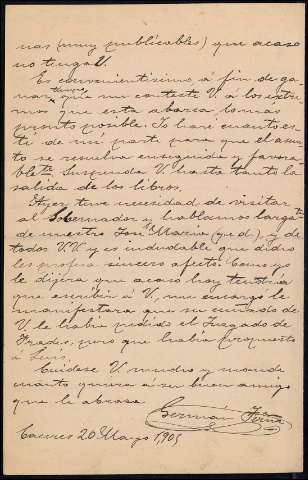 nas (muy publicables) que acaso
no tenga V.
Es convenientísimo á fin de ga-
nar tiempo que me conteste V. á los extre-
mos que esta abarca, lo más
pronto posible. Yo haré cuanto es-
té de mi parte para que el asun-
to se resuelva enseguida y favora-
blte. Suspenda V. hasta tanto la
salida de los libros.
Ayer tuve necesidad de visitar
al Gobernador y hablamos largate
de nuestro José María (q e d.) y de
todos VV. y es indudable que dicho
les profesa sincero afecto. Como yo
le dijera que acaso hoy tendría
que escribir á V., me encargó le
manifestara que su cuñado de
V. le había pedido el Juzgado de
Frades, pero que había propuesto
á Luis.
Cuídese V. mucho y mande
cuanto quiera á su buen amigo
que le abraza
Germán
Cáceres 20 Marzo 1905